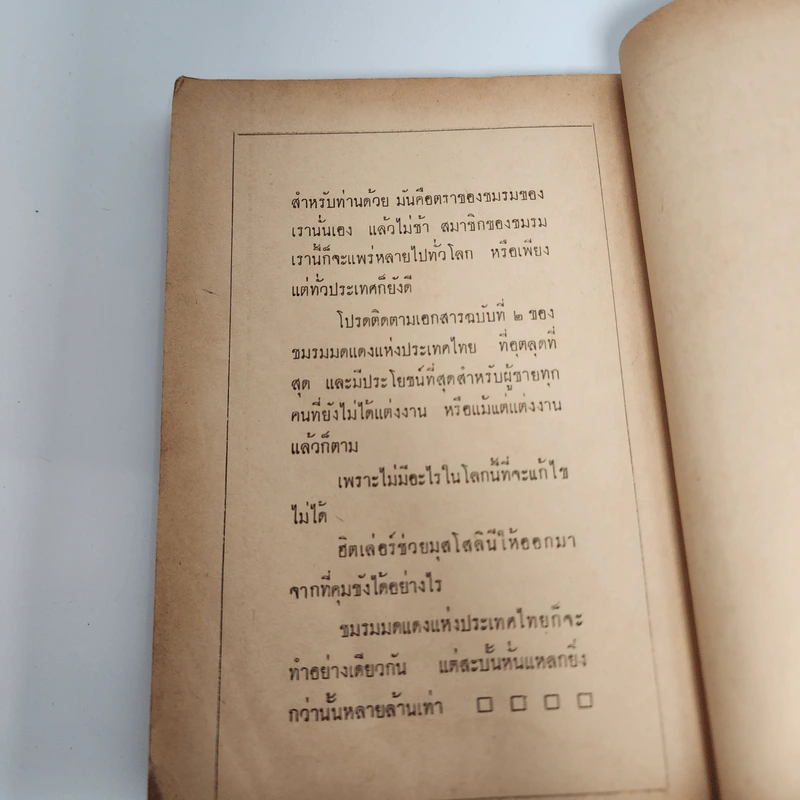 สำหรับท่านด้วย มันคือตราของชมรมของ
เรานั่นเอง แล้วไม่ช้า สมาชิกของชมรม
เรานี้ก็จะแพร่หลายไปทั่วโลก หรือเพียง
แต่ทั่วประเทศก็ยังดี
โปรดติดตามเอกสารฉบับที่ ๒ ของ
ชมรมมดแดงแห่งประเทศไทย ที่อุตลุดที่
สุด และมีประโยชน์ที่สุดสำหรับผู้ชายทุก
คนที่ยังไม่ได้แต่งงาน หรือแม้แต่แต่งงาน
แล้วก็ตาม
เพราะไม่มีอะไรในโลกนี้ที่จะแก้ไข
ไม่ได้
ฮิตเล่อร์ช่วยมุสโสลินีให้ออกมา
จากที่คุมขังได้อย่างไร
ชมรมมดแดงแห่งประเทศไทยก็จะ
ทำอย่างเดียวกัน แต่สะบั้นหั่นแหลกยิ่ง
กว่านั้นหลายล้านเท่า □ □ □ □